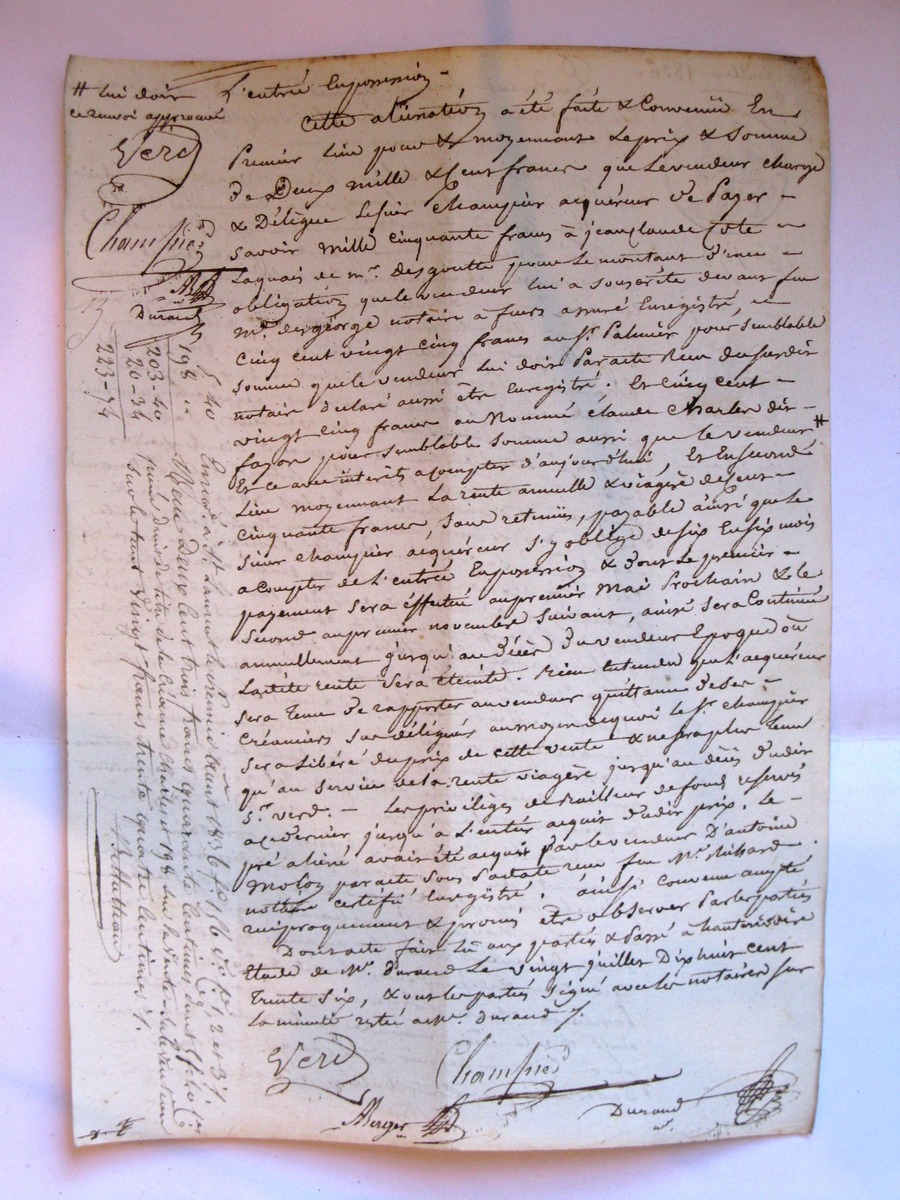 # lui doit
ce renvoi approuvé
Verd
Champier
Durand
L'entrée En possession
Cette aliénation a été faite & Convenüe En
Premier Lieu pour & moyennant Le prix & Somme
De Deux mille & Cent francs que Le vendeur charge
& Délègue Le sieur Champier acquéreur De Payer
Savoir Mille cinquante francs à jean claude
Laquais de mr. Desgoutte pour Le montant D'une
obligation que Le vendeur Lui a souscrite devant feu
Me. desgeorge notaire a fleurs assuré Enregistré,
Cinq cent vingt Cinq francs au Sr. Palmier pour semblable
somme que Le vendeur Lui doit Par acte Reçu du susdit
notaire Déclaré aussi être Enregistré. Et Cinq cent
vingt Cinq francs au Nommé claude Charles dit
façon pour semblable somme aussi que Le vendeur #
Et ce avec intérêts a compter D'aujourd'hui, Et En second
Lieu moyennant La rente annuelle & viagère de Cent
Cinquante francs, Sans retenüe, payable ainsi que Le
sieur champier acquéreur s'y oblige de six En six mois
a Compter de L'entrée En possession & Dont Le premier
payement sera éffectué au premier Mai Prochain & Le
second au premier novembre suivant, ainsi sera Continué
annuellement jusqu'au Décès Du vendeur Epoque où
La dite rente Sera éteinte. Bien Entendu que L'acquéreur
sera Tenu De rapporter au vendeur quittance De ses
Créanciers sus délégués au moyen de quoi Le Sr. champier
sera Libéré du prix de cette vente & ne sera plus Tenu
qu'au service de La rente viagère jusqu'au décès Dudit
Sr. verd. — Les privilèges de Bailleur de fond réservés
a ce dernier jusqu'à L'entier acquit Dudit prix. Le
pré aliéné avait été acquis par Le vendeur D'antoine
Molon par acte Sous Sa date reçu feu Me. Richard
notaire certifié Enregistré. ainsi convenu accepté
réciproquement & promis être observer Par Les parties
Dont acte fait Lu aux parties & Passé à hauterivoire
Etude de Me. Durand Le vingt juillet Dix huit cent
Trente Six, & ont Les parties signé avec Les notaires sur
La minute restée a Me. Durand
Verd
Champier
Merger
Durand
198
5-40
203-40
20-34
223-74
Enreg. à St. Laurent le premier août 1836 f° 16 v° Cs. 1 2 et 3
Reçu Deux Cent trois francs quarante Centimes dont
pour droit de la Créance 198 sur la vente
sur le tout vingt francs trente quatre centimes